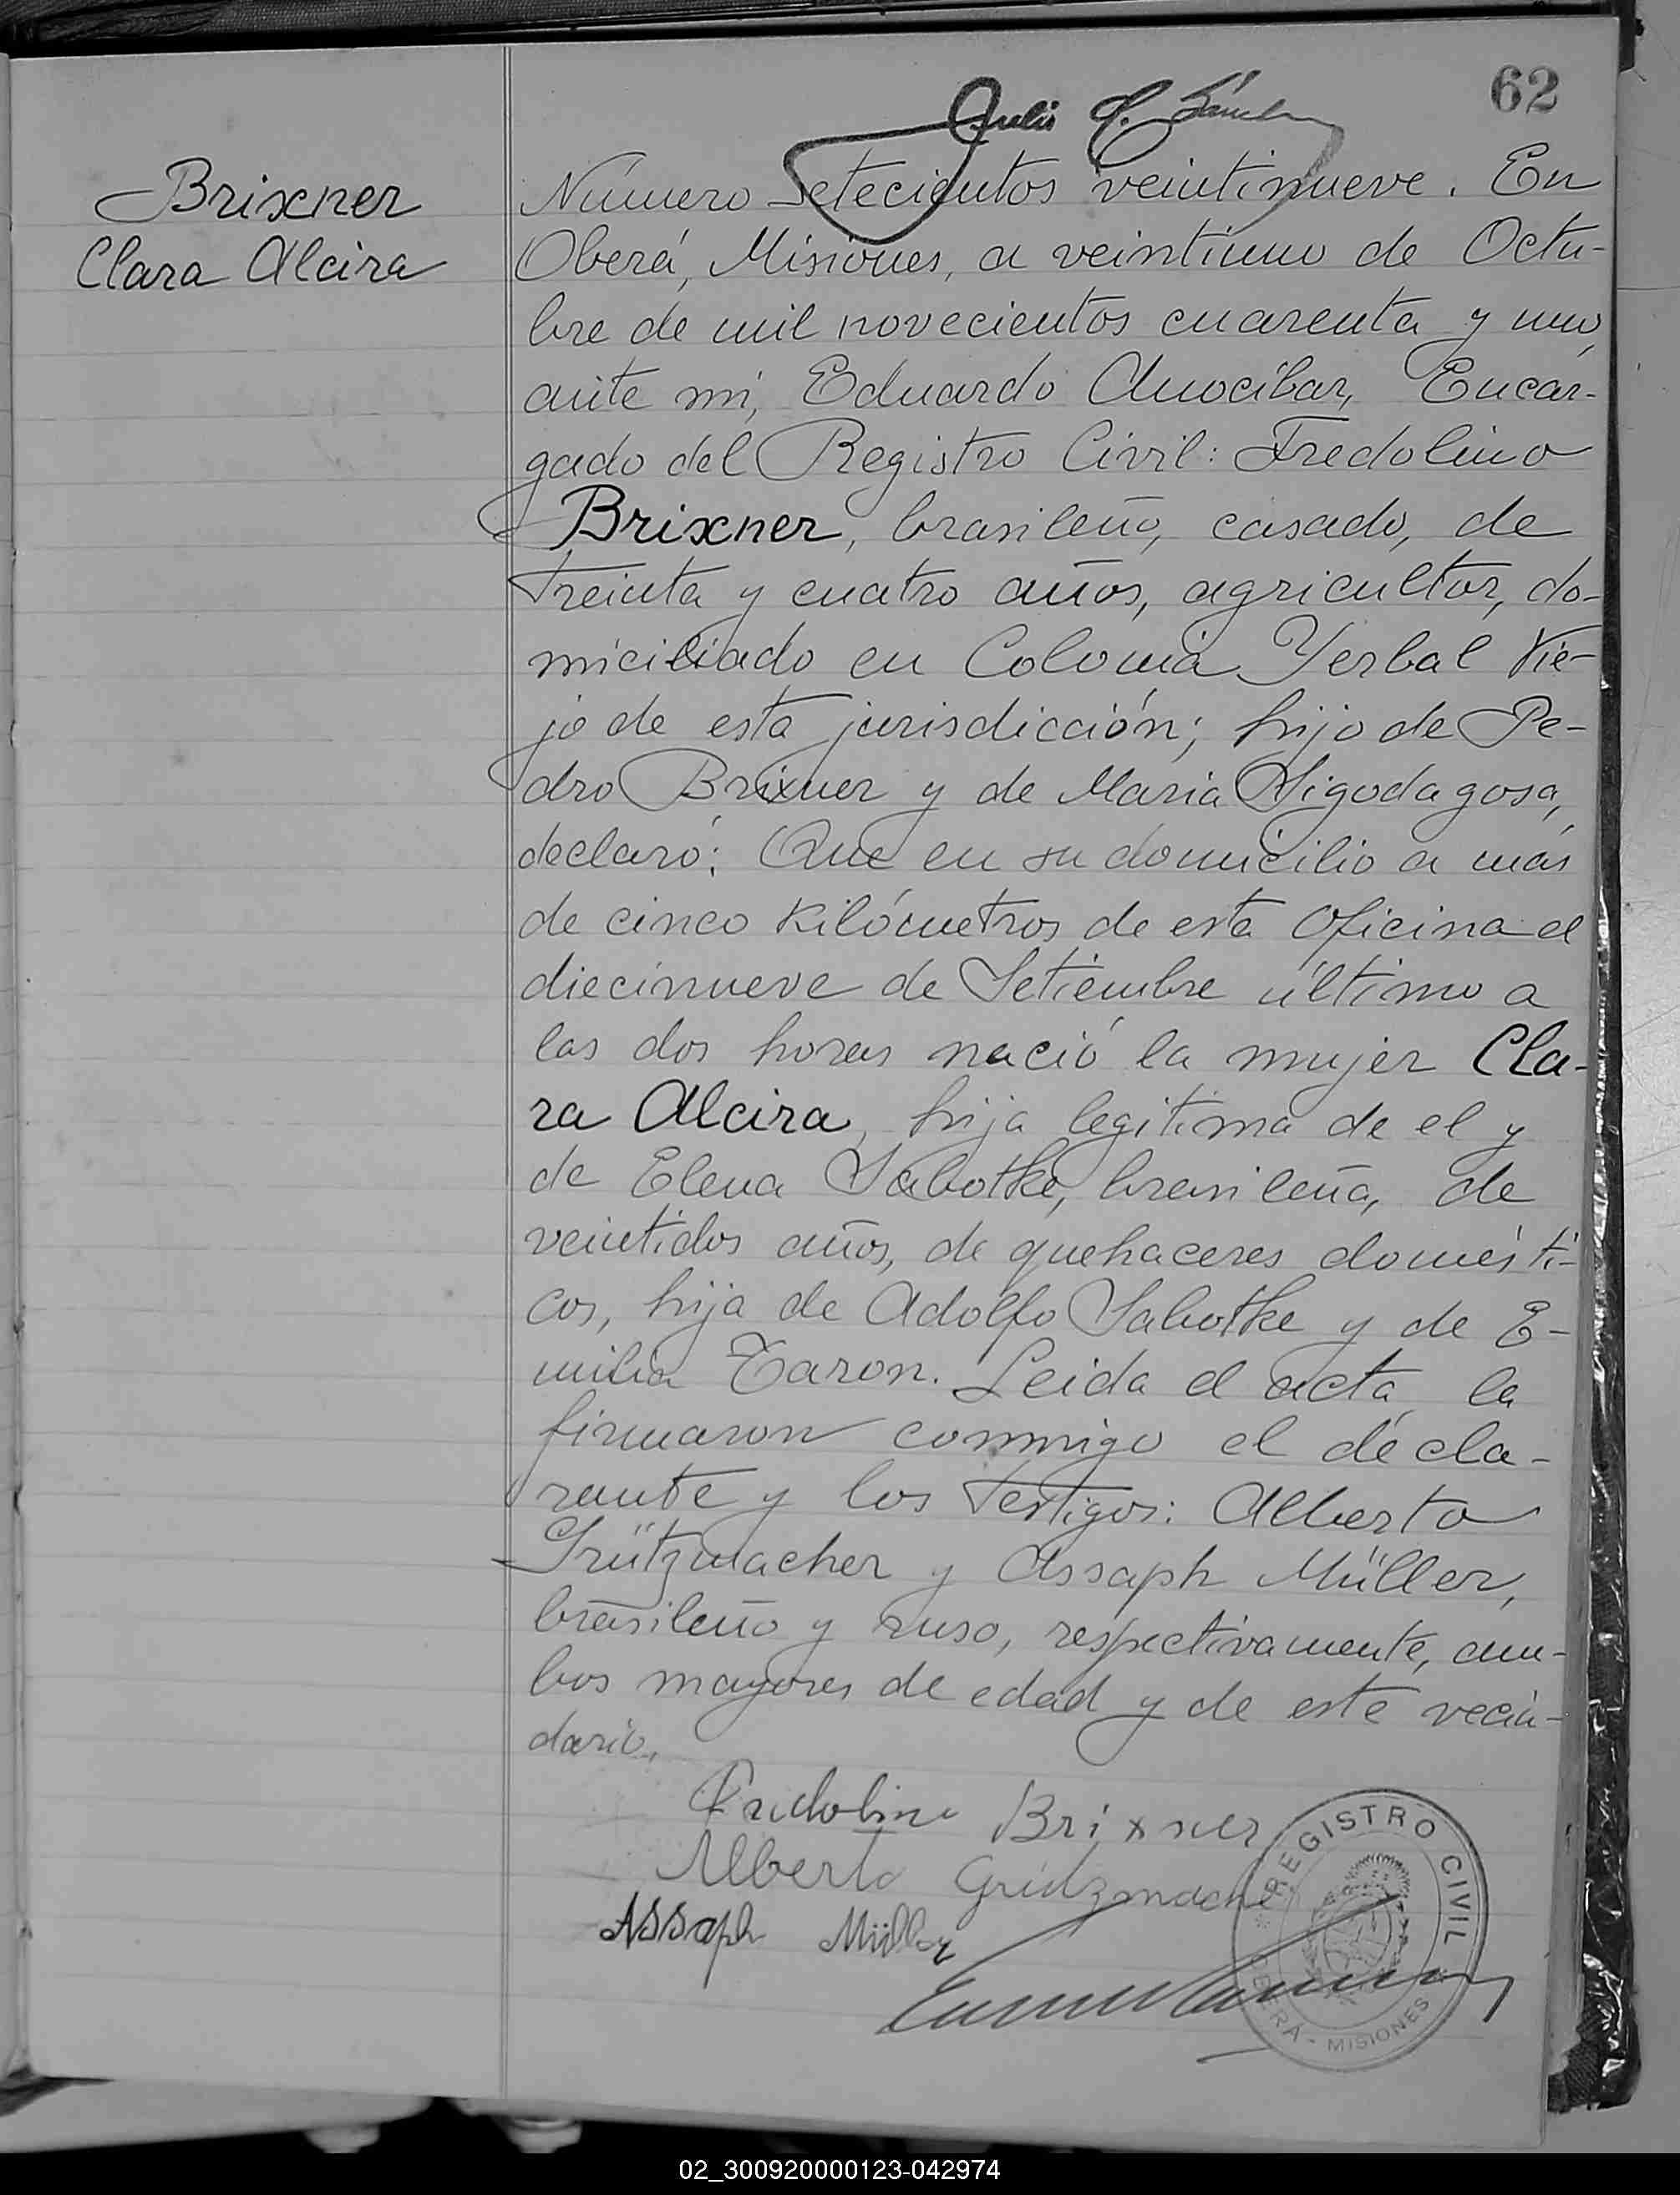 62
Julio A. Sánchez
Brixner
Clara Alcira
Número setecientos veintinueve. En
Oberá, Misiones, a veintiuno de Octu-
bre de mil novecientos cuarenta y uno,
ante mi, Eduardo Anocibar, Encar-
gado del Registro Civil: Fredolino
Brixner, brasileño, casado, de
treinta y cuatro años, agricultor, do-
miciliado en Colonia Yerbal Vie-
jo de esta jurisdicción; hijo de Pe-
dro Brixner y de Maria Sigodagosa,
declaró: Que en su domicilio a más
de cinco kilómetros de esta Oficina el
diecinueve de Setiembre último a
las dos horas nació la mujer Cla-
ra Alcira, hija legitima de el y
de Elena Sabotke, brasileña, de
veintidos años, de quehaceres domésti-
cos, hija de Adolfo Sabotke y de E-
milia Taron. Leida el acta, la
firmaron conmigo el decla-
rante y los testigos: Alberto
Grützmacher y Assaph Müller,
brasileño y ruso, respectivamente, am-
bos mayores de edad y de este vecin-
dario.
Fridolino Brixner
Alberto Grützmacher
Assaph Müller
REGISTRO CIVIL
OBERÁ - MISIONES
02_300920000123-042974